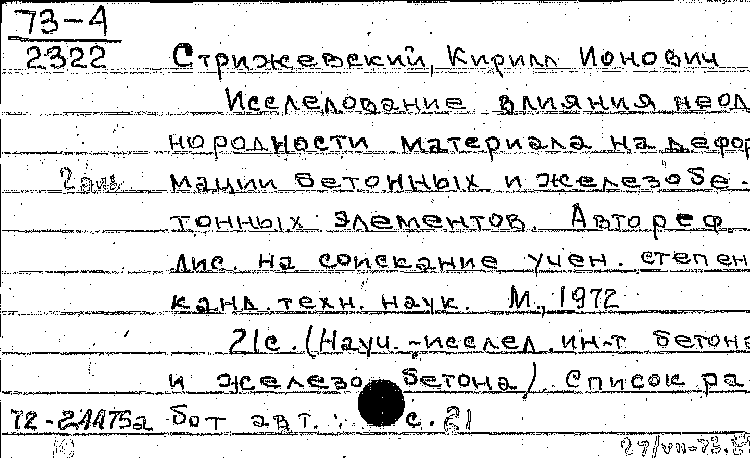 73-4
2322 Стрижевский, Кирилл Ионович
Исследование влияния неод
нородности материала на дефор
2 экз мации бетонных и железобе-
тонных элементов. Автореф
дис. на соискание учен. степен
канд. техн. наук. М., 1972
21с. (Науч.-исслед. ин-т бетона
и железобетона). Список ра
72-24475а бот авт.: с. 21
27/VII-73.